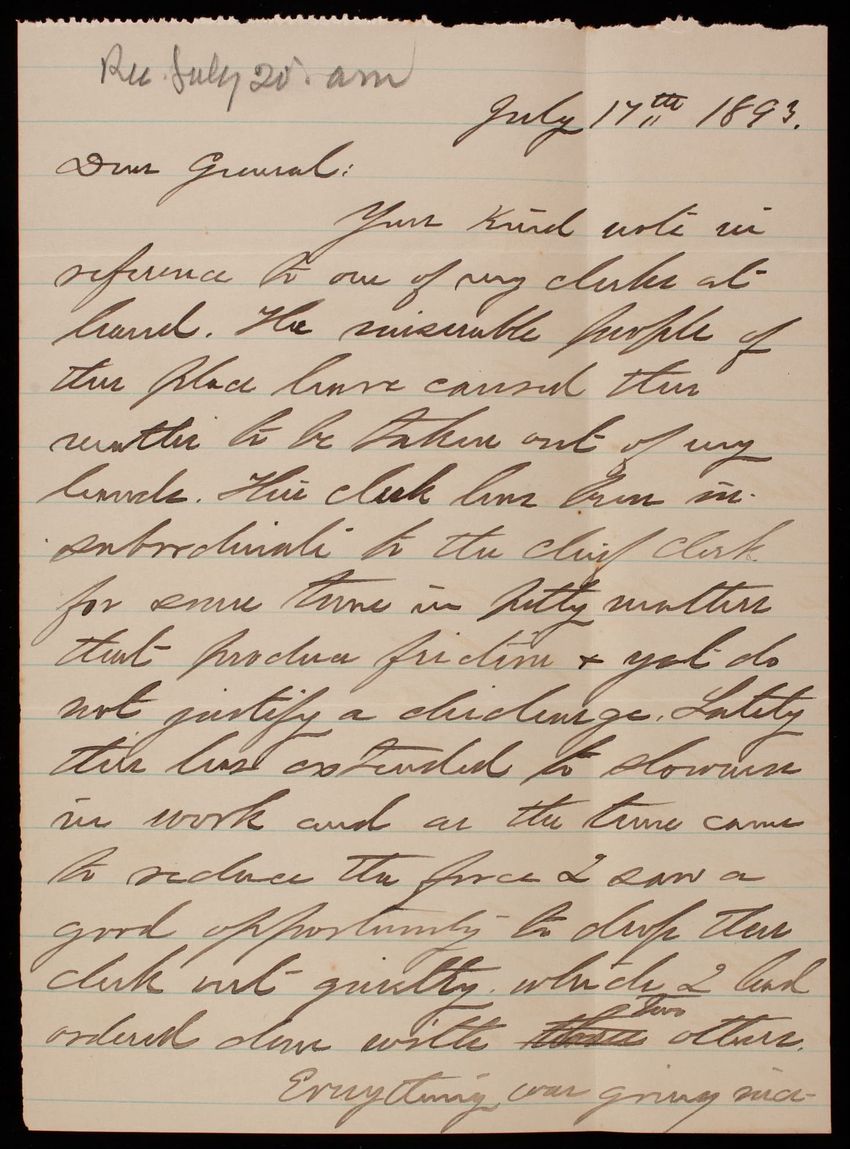 Rec. July 20. am
July 17th 1893.
Dear General:
Your kind note in
reference to one of my clerks at
hand. The miserable people of
this place have caused this
matter to be taken out of my
hands. This clerk has been in-
subordinate to the chief clerk
for some time in petty matters
that produce friction & yet do
not justify a discharge. Lately
this has extended to slowness
in work and as the time came
to reduce the force I saw a
good opportunity to drop this
clerk out quietly. which I had
ordered done with two others.
Everything was going nice-